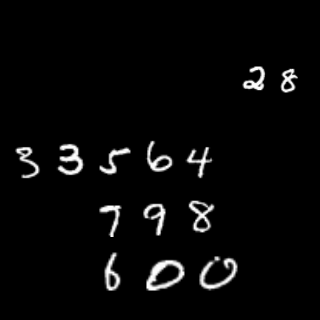 28
33564
798
600